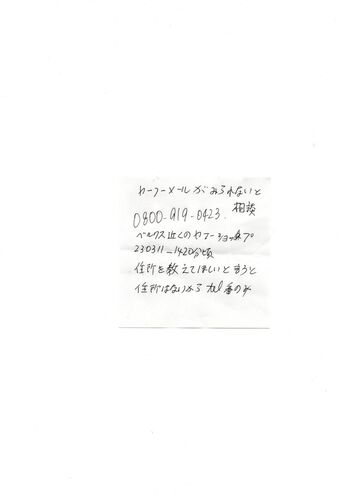 ヤフーメールがみられないと
相談
0800-919-0423.
ベルクス近くのヤフーショップ
230311-1420分頃
住所を教えてほしいと言うと
住所はないから tel番のみ